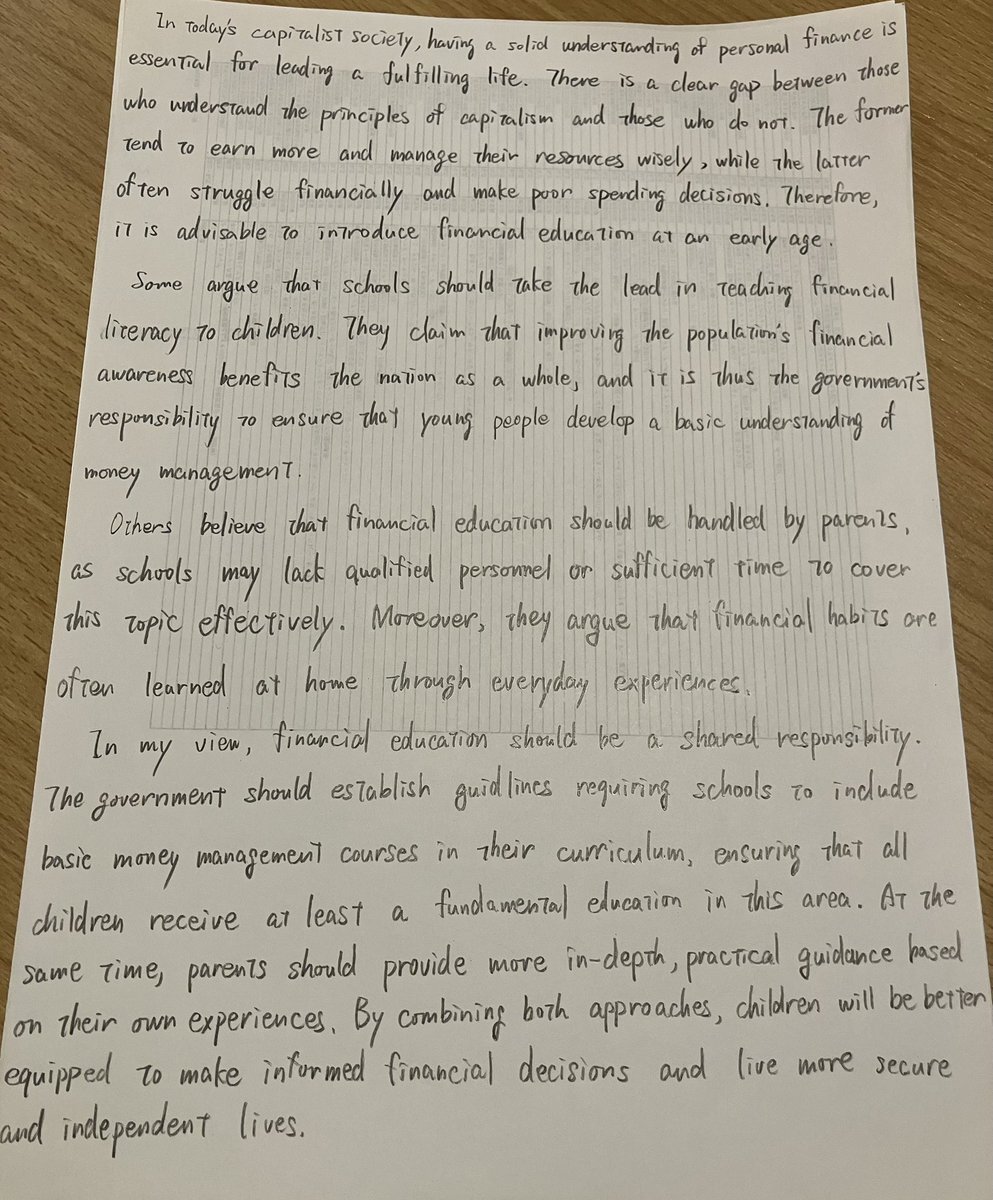 In today's capitalist society, having a solid understanding of personal finance is
essential for leading a fulfilling life. There is a clear gap between those
who understand the principles of capitalism and those who do not. The former
tend to earn more and manage their resources wisely, while the latter
often struggle financially and make poor spending decisions. Therefore,
it is advisable to introduce financial education at an early age.
Some argue that schools should take the lead in teaching financial
literacy to children. They claim that improving the population's financial
awareness benefits the nation as a whole, and it is thus the government's
responsibility to ensure that young people develop a basic understanding of
money management.
Others believe that financial education should be handled by parents,
as schools may lack qualified personnel or sufficient time to cover
this topic effectively. Moreover, they argue that financial habits are
often learned at home through everyday experiences.
In my view, financial education should be a shared responsibility.
The government should establish guidlines requiring schools to include
basic money management courses in their curriculum, ensuring that all
children receive at least a fundamental education in this area. At the
same time, parents should provide more in-depth, practical guidance based
on their own experiences. By combining both approaches, children will be better
equipped to make informed financial decisions and live more secure
and independent lives.